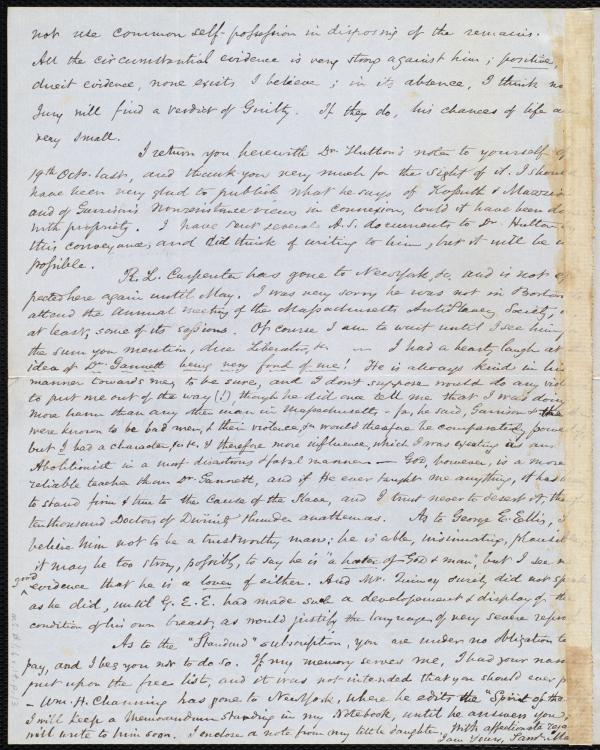 not use common self-possession in disposing of the remains.
All the circumstantial evidence is very strong against him; positive,
direct evidence, none exists I believe; in its absence, I think no
Jury will find a verdict of Guilty. If they do, his chances of life are
very small.
I return you herewith Dr. Hutton's note to yourself of
19th Octo. last, and thank you very much for the sight of it. I should
have been very glad to publish what he says of Kossuth & Mazzini
and of Garrison's Nonresistance views in connexion, could it have been done
with propriety. I have sent several A.S. documents to Dr. Hutton by
this conveyance, and did think of writing to him, but it will be im
possible.
R. L. Carpenter has gone to New York, &c. and is not ex
pected here again until May. I was very sorry he was not in Boston to
attend the Annual meeting of the Massachusetts AntiSlavery Society,
at least, some of its sessions. Of course I am to wait until I see him,
the sum you mention, due Liberator, &c. — I had a hearty laugh at
idea of Dr. Gannett being very fond of me! He is always kind in his
manner towards me, to be sure, and I don't suppose would do any
to put me out of the way (!), though he did once tell me that I was doing
more harm than any other man in Massachusetts, – for, he said, Garrison &
were known to be bad men, & their violence, &c. would therefore be comparatively powerless
but I had a character, &c. &c. & therefore more influence, which I was exerting as an
Abolitionist in a most disastrous & fatal manner. — God, however, is a more
reliable teacher than Dr. Gannett, and if He ever taught me anything, it has been
to stand firm & true to the Cause of the Slave, and I trust never to desert it, tho'
ten thousand Doctors of Divinity thunder anathemas. As to George E. Ellis, I
believe him not to be a trustworthy man; he is able, insinuating, plausible,
it may be too strong, possibly, to say he is "a hater of God & man," but I see no
good evidence that he is a lover of either. And Mr. Quincy surely did not speak
as he did, until G. E. E. had made such a development & display of the
condition of his own breast, as would justify the language of very severe reproof
As to the "Standard" subscription, you are under no obligation to
pay, and I beg you not to do so. If my memory serves me, I had your name
put upon the free list, and it was not intended that you should ever pay
– Wm. H. Channing has gone to New York, where he edits the "Spirit of the
I will keep a Memorandum standing in my Notebook, until he answers you,
will write to him soon. I enclose a note from my little daughter
With affectionate regards
I am Yours, Saml. May